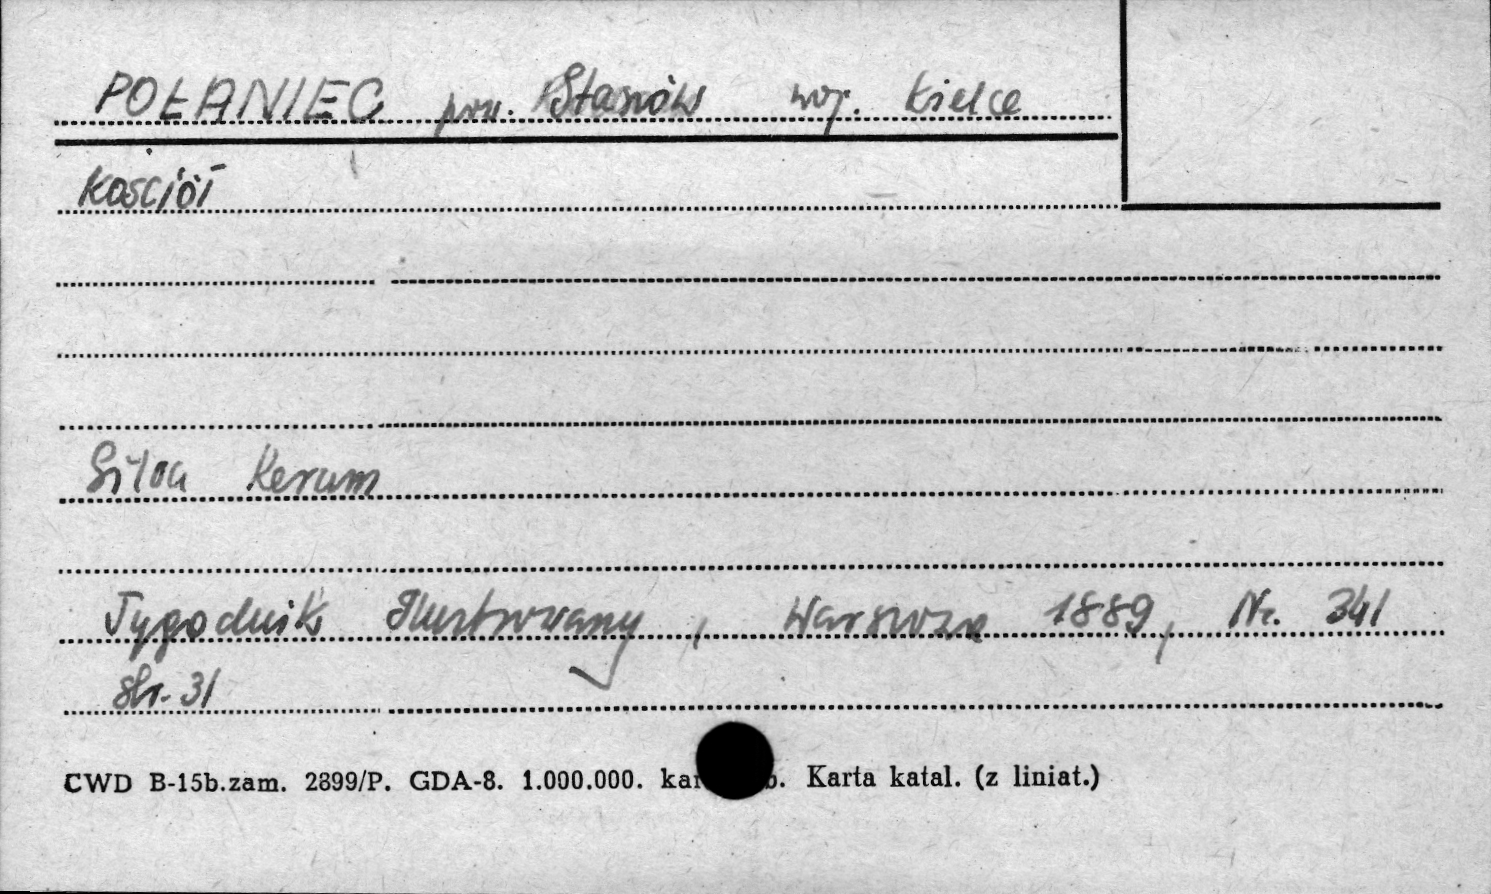 POŁANIEC pow. Staszów woj. Kielce
Kościół
Silva Rerum
Tygodnik Ilustrowany, Warszawa 1889, Nr. 341
str. 31
CWD B-15b.zam. 2899/P. GDA-8. 1.000.000. Karta katal. (z liniat.)